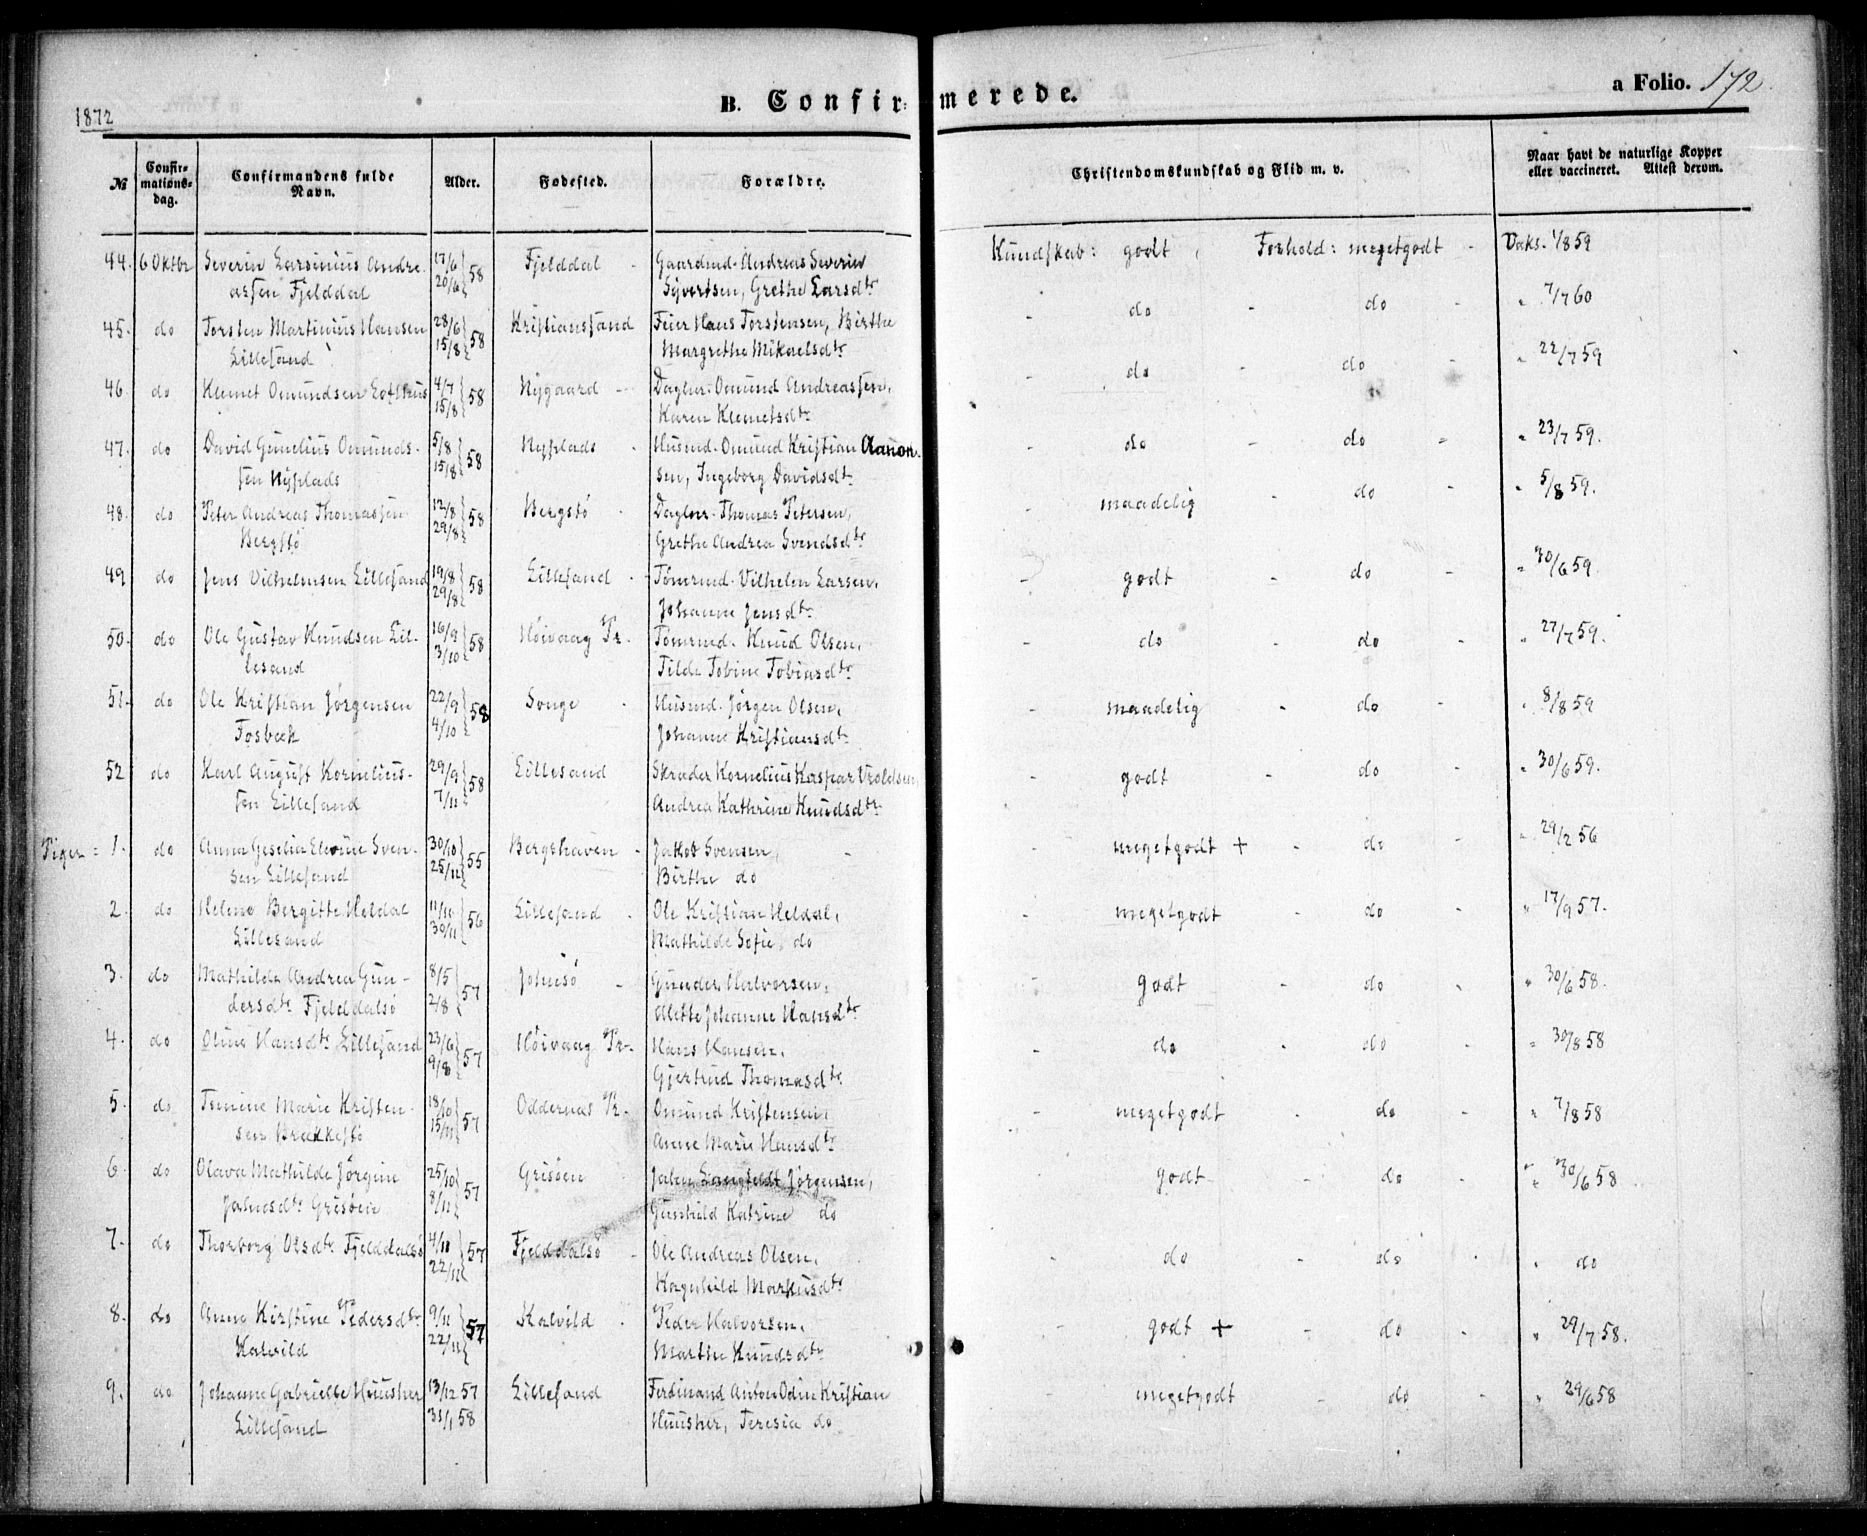 B. Confirmerede.
a Folio. 172.
1872
№ Confirmationsdag. Confirmandens fulde Navn. Alder. Fødested. Forældre. Christendomskundskab og Flid m. v. Naar havt de naturlige Kopper eller vaccineret. Attest derom.
44. 6 Oktbr Severin Larsinius Andre- 17/6 58 Fjelddal - Gaardmd. Andreas Severin Kundskab: godt, Forhold: megetgodt - Vaks. 1/8 59
assen Fjelddal 20/6 Syvertsen, Grethe Larsdtr
45. do Torsten Martinius Hansen 28/6 58 Kristianssand Feier Hans Torstensen, Birthe - do do - " 7/7 60
Lillesand 15/8 Margrethe Mikaelsdtr
46. do Klemet Omundsen 4/7 58 Nygaard - Daglnr. Omund Andreassen, - do - do - " 22/7 59
15/8 Karen Klemetsdtr
47. do David Gunelius Omunds- 5/8 58 Nyplads - Husmd. Omund Kristian Aanon- - do - do - " 23/7 59.
sen Nyplads 15/8 sen, Ingeborg Davidsdtr
48. do Peter Andreas Thomassen 12/8 58 Bergstø - Daglnr. Thomas Petersen, - maadelig - do - " 5/8 59.
Bergstø 29/8 Grethe Andrea Svendsdtr
49 do Jens Vilhelmsen Lillesand 19/8 58 Lillesand - Tømrmd. Vilhelm Larsen, - godt - do - " 30/6 59.
29/8 Johanne Jensdtr
50. do Ole Gustav Knudsen Lil- 16/9 58 Høivaag Pr. Tømrmd. Knud Olsen, - do - do - " 27/7 59.
lesand 3/10 Tilde Tobine Tobiasdtr
51. do Ole Kristian Jørgensen 22/9 58 Songe - Husmd. Jørgen Olsen, - maadelig - do - " 8/8 59
Fosbæk 4/10 Johanne Kristiansdtr
52 do Karl August Kornelius- 29/9 58 Lillesand Skræder Kornelius Kaspar Vroldsen, - godt - do - " 30/6 59.
sen Lillesand 7/11 Andrea Kathrine Knudsdtr
Piger = 1. do Anna Geselia Elevine Sven- 30/10 55 Bergshaven - Jakob Svensen, - megetgodt + - do - " 29/2 56
sen Lillesand 25/12 Birthe do
2. do Helene Bergitte Heldal 11/10 56 Lillesand - Ole Kristian Heldal, - megetgodt - do - " 17/9 57.
Lillesand 30/11 Mathilde Sofie do
3. do Mathilde Andrea Gun- 8/5 57 Johnsø - Gunder Halvorsen, - godt - do - " 30/6 58.
dersdtr Fjelddalsø 2/8 Mette Johanne Hansdtr
4. do Oline Hansdtr Lillesand 23/6 57 Høivaag Pr. Hans Hansen, - do - do - " 30/8 58
9/8 Gjertrud Thomasdtr
5. do Tomine Marie Kristen- 18/10 57 Oddernæs Pr. Omund Kristensen, - megetgodt - do - " 7/8 58
sen Brækkestø 15/11 Anne Marie Hansdtr
6. do Olava Mathilde Jørgine 25/10 57 Grisøen Jahn Langfeldt Jørgensen, godt - do - " 30/6 58
Jahnsdtr Grisøen 8/11 Gunhild Katrine do
7. do Thorborg Olsdtr Fjelddalsø 4/10 57 Fjelddalsø - Ole Andreas Olsen, - do - do - " do
22/11 Ragnhild Markusdtr
8. do Anne Kirstine Pedersdtr 9/11 57 Kalvild - Peder Halvorsen, - godt + - do - " 29/7 58.
Kalvild 22/11 Marthe Knudsdtr
9. do Johanne Gabrielle Huusher 13/12 57 Lillesand Ferdinand Anton Odin Kristian - megetgodt - do - " 29/6 58
Lillesand 31/1 58 Huusher, Teresia do